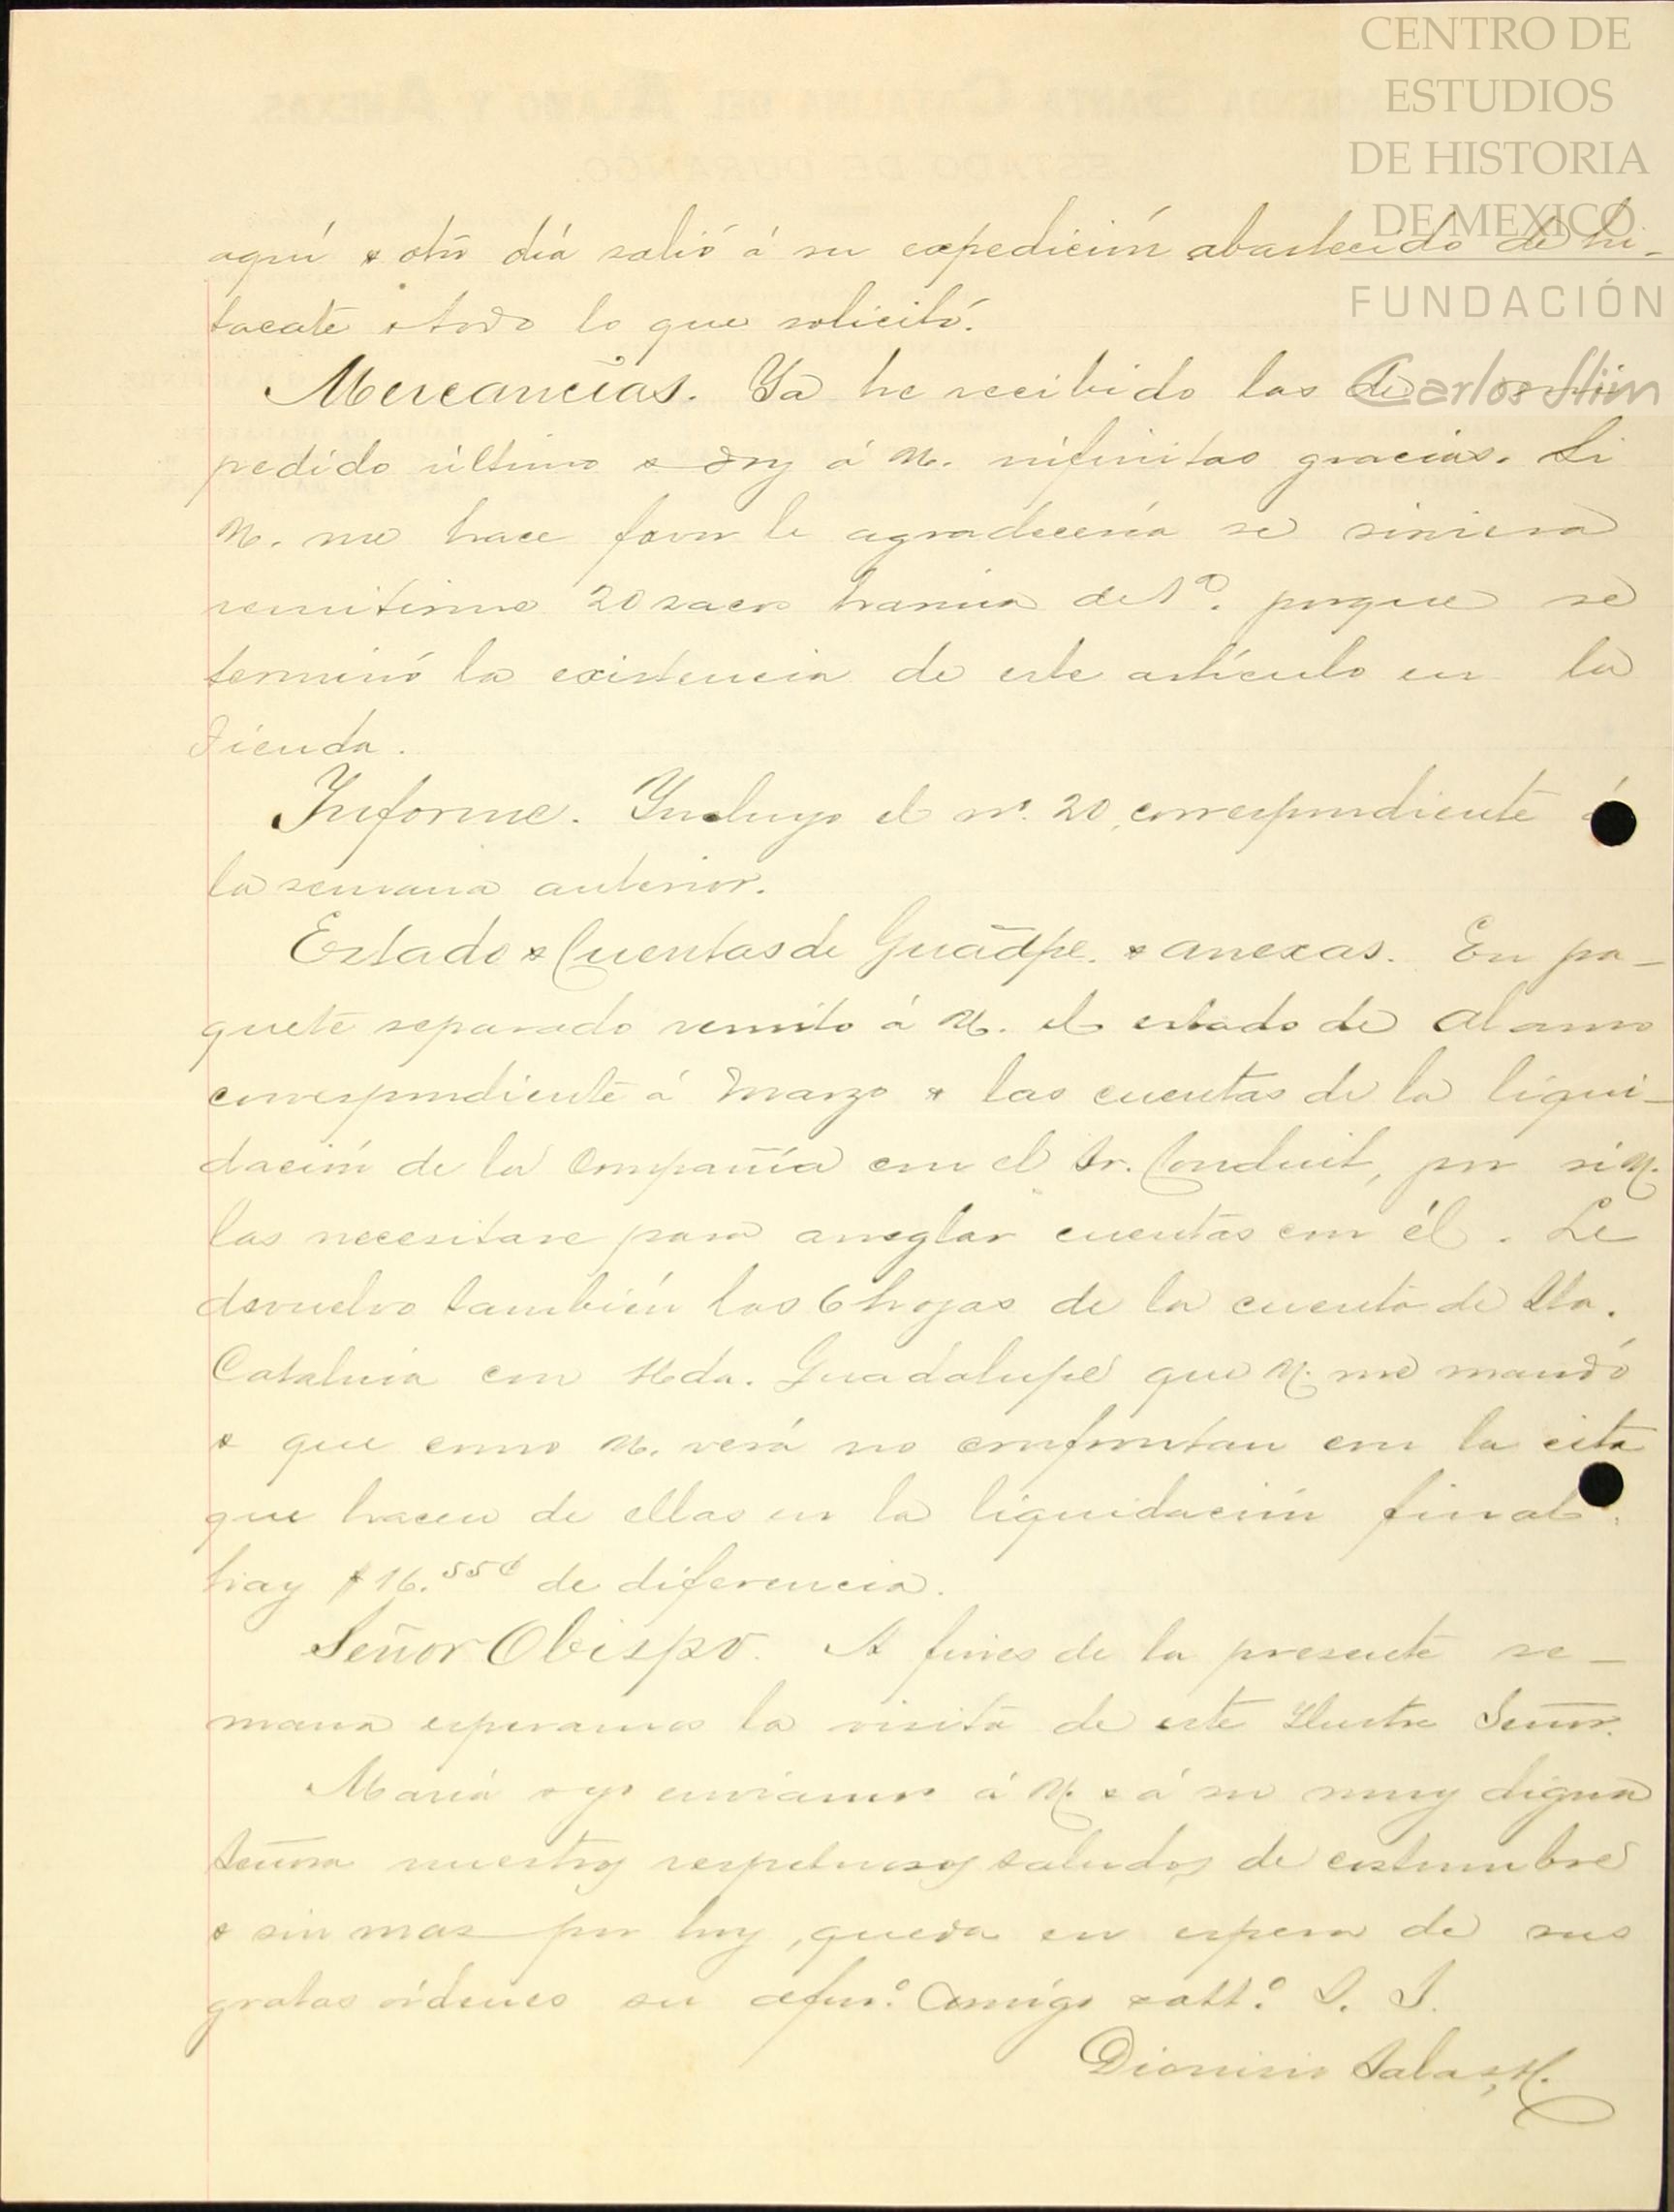 CENTRO DE
ESTUDIOS
DE HISTORIA
DE MEXICO
FUNDACIÓN
Carlos Slim
aquí & otro día salió á su expedición abastecido de hi-
tacate & todo lo que solicitó.
Mercancías. Ya he recibido las de mi
pedido último & doy á U. infinitas gracias. Si
U. me hace favor le agradecería se sirviera
remitirme 20 sacos harina de 1ª. porque se
terminó la existencia de este artículo en la
Tienda.
Informe. Incluyo el nº. 20, correspondiente á
la semana anterior.
Estado & Cuentas de Guadpe. & anexas. En pa-
quete separado remito á U. el estado de Alamo
correspondiente á Marzo & las cuentas de la liqui-
dación de la Compañía con el Sr. Conduit, por si U.
las necesitare para arreglar cuentas con él. Le
devuelvo también las 6 hojas de la cuenta de Sta.
Catalina con Hda. Guadalupe que U. me mandó
& que como U. verá no confrontan con la cita
que hacen de ellas en la liquidación final.
hay $16.55¢ de diferencia.
Señor Obispo. A fines de la presente se-
mana esperamos la visita de este Ilustre Señor.
María & yo enviamos á U. & á su muy digna
Señora nuestros respetuosos saludos de costumbre
& sin mas por hoy, queda en espera de sus
gratas órdenes su afmº. Amigo & attº. S. S.
Dionisio Salas, H.